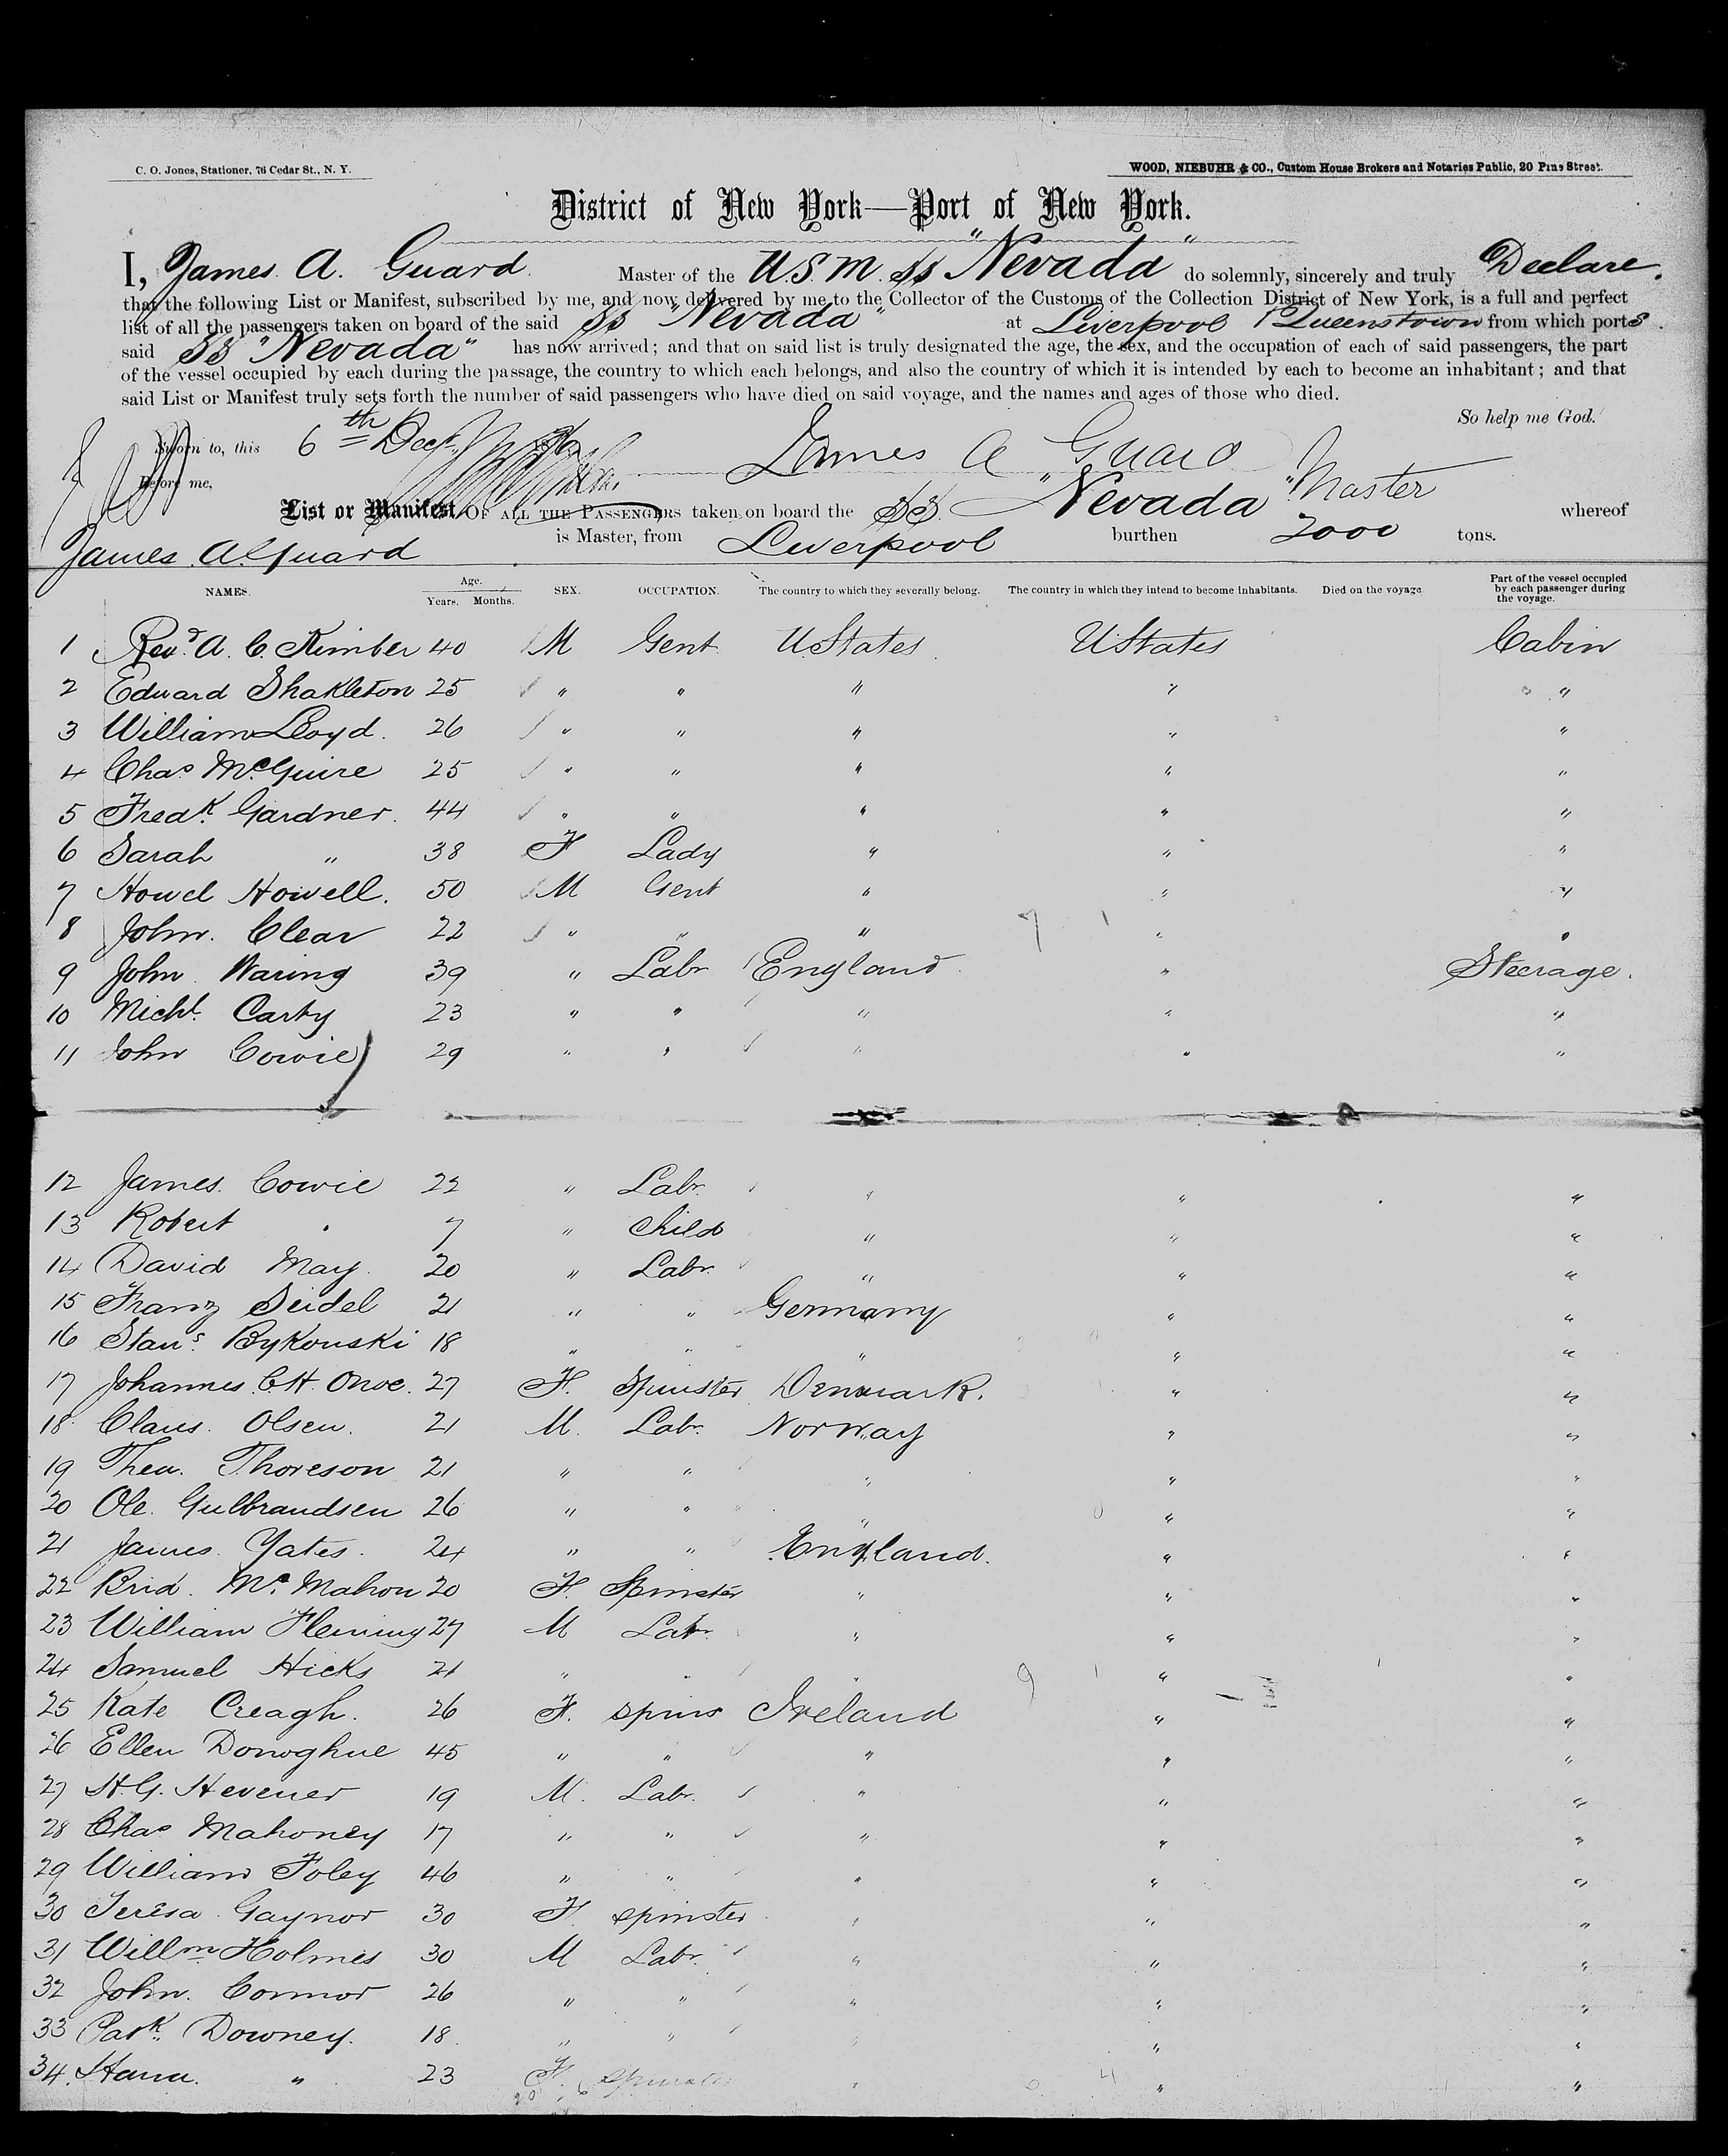 C. O. Jones, Stationer, 76 Cedar St., N. Y.
WOOD, NIEBUHR & CO., Custom House Brokers and Notaries Public, 20 Pine Street.
District of New York—Port of New York.
I, James A. Guard Master of the U.S.M. SS "Nevada" do solemnly, sincerely and truly Declare.
that the following List or Manifest, subscribed by me, and now delivered by me to the Collector of the Customs of the Collection District of New York, is a full and perfect
list of all the passengers taken on board of the said SS "Nevada" at Liverpool & Queenstown from which ports.
said SS "Nevada" has now arrived; and that on said list is truly designated the age, the sex, and the occupation of each of said passengers, the part
of the vessel occupied by each during the passage, the country to which each belongs, and also the country of which it is intended by each to become an inhabitant; and that
said List or Manifest truly sets forth the number of said passengers who have died on said voyage, and the names and ages of those who died.
So help me God.
Sworn to, this 6th Decr. James A Guard
Before me, Master
List or Manifest OF ALL THE PASSENGERS taken on board the SS "Nevada" whereof
James A. Guard is Master, from Liverpool burthen 2000 tons.
NAMES. Age. Years. Months. SEX. OCCUPATION. The country to which they severally belong. The country in which they intend to become inhabitants. Died on the voyage. Part of the vessel occupied by each passenger during the voyage.
1 Revd. A. C. Kimber 40 M Gent U States U States Cabin
2 Edward Shakleton 25 " " " " "
3 William Lloyd. 26 " " " " "
4 Chas McGuire 25 " " " " "
5 Fredk. Gardner. 44 " " " " "
6 Sarah " 38 F Lady " " "
7 Howel Howell. 50 M Gent " " "
8 John. Clear 22 " " " " "
9 John Waring 39 " Labr England " Steerage.
10 Michl. Carty 23 " " " " "
11 John Cowie 29 " " " " "
12 James. Cowie 22 " Labr. " " "
13 Robert " 7 " Child " " "
14 David May. 20 " Labr. " " "
15 Franz Seidel 21 " " Germany " "
16 Stans. Bykouski 18 " " " " "
17 Johannes C.H. 27 F. Spinster Denmark. " "
18 Claus. Olsen. 21 M. Labr. Norway " "
19 Theu. Thoreson 21 " " " " "
20 Ole. Gulbrandsen 26 " " " " "
21 James. Yates. 24 " " England. " "
22 Brid. McMahon 20 F. Spinster " " "
23 William Fleming 27 M Labr. " " "
24 Samuel Hicks 21 " " " " "
25 Kate Creagh. 26 F. spins Ireland " "
26 Ellen Donoghue 45 " " " " "
27 H.G. Hevener 19 M. Labr. " " "
28 Chas Mahoney 17 " " " " "
29 William Foley 46 " " " " "
30 Teresa Gaynor 30 F. spinster " " "
31 Willm. Holmes 30 M Labr. " " "
32 John. Connor 26 " " " " "
33 Patk. Downey. 18 " " " " "
34. Hana. " 23 F. spinster " " "